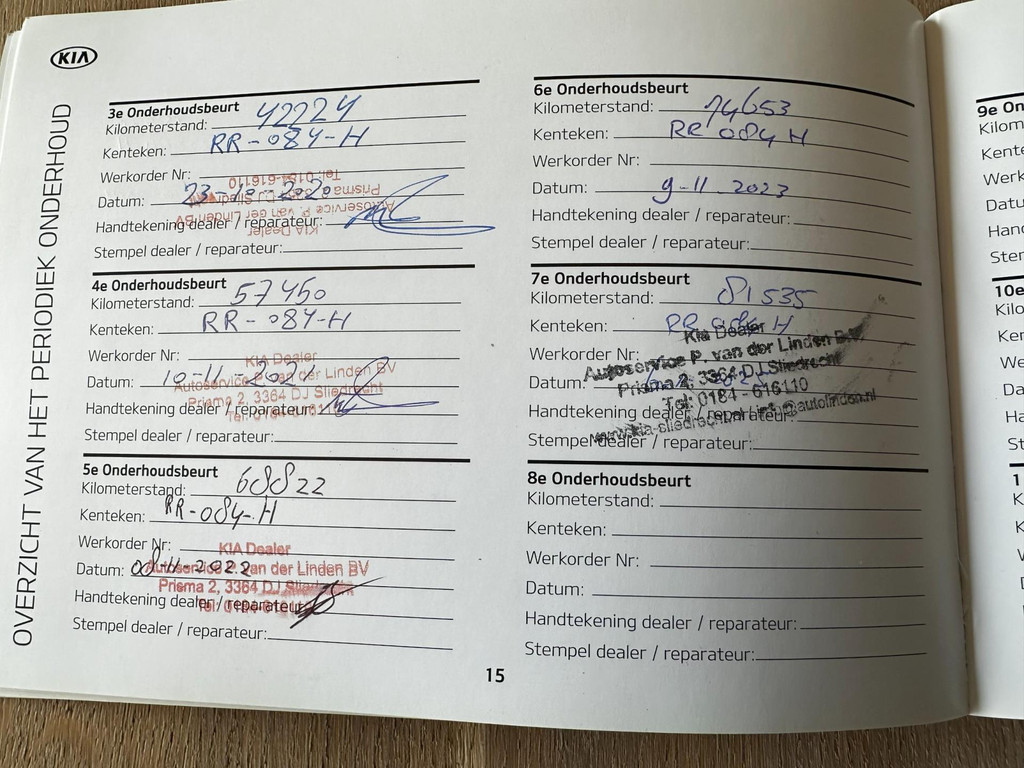 KIA
OVERZICHT VAN HET PERIODIEK ONDERHOUD
3e Onderhoudsbeurt
Kilometerstand: 42224
Kenteken: RR-084-H
Werkorder Nr:
Datum: 23-10-2020
Handtekening dealer / reparateur:
Stempel dealer / reparateur:
KIA Dealer
Autoservice P. van der Linden BV
Prisma 2, 3364 DJ Sliedrecht
Tel: 0184-616110
4e Onderhoudsbeurt
Kilometerstand: 57450
Kenteken: RR-084-H
Werkorder Nr:
Datum: 10-11-2021
Handtekening dealer / reparateur:
Stempel dealer / reparateur:
KIA Dealer
Autoservice P. van der Linden BV
Prisma 2, 3364 DJ Sliedrecht
5e Onderhoudsbeurt
Kilometerstand: 68822
Kenteken: RR-084-H
Werkorder Nr:
Datum: 08-11-2022
Handtekening dealer / reparateur:
Stempel dealer / reparateur:
KIA Dealer
Autoservice P. van der Linden BV
Prisma 2, 3364 DJ Sliedrecht
6e Onderhoudsbeurt
Kilometerstand: 74653
Kenteken: RR 084 H
Werkorder Nr:
Datum: 9-11-2023
Handtekening dealer / reparateur:
Stempel dealer / reparateur:
7e Onderhoudsbeurt
Kilometerstand: 81535
Kenteken: RR 084 H
Werkorder Nr:
Datum:
Handtekening dealer / reparateur:
Stempel dealer / reparateur:
Kia Dealer
Autoservice P. van der Linden B.V.
Prisma 2, 3364 DJ Sliedrecht
Tel: 0184 - 616110
8e Onderhoudsbeurt
Kilometerstand:
Kenteken:
Werkorder Nr:
Datum:
Handtekening dealer / reparateur:
Stempel dealer / reparateur:
15
9e On
Kilom
Kente
Werk
Datu
Hand
Ster
10e
Kilo
Ken
We
Da
Ha
St